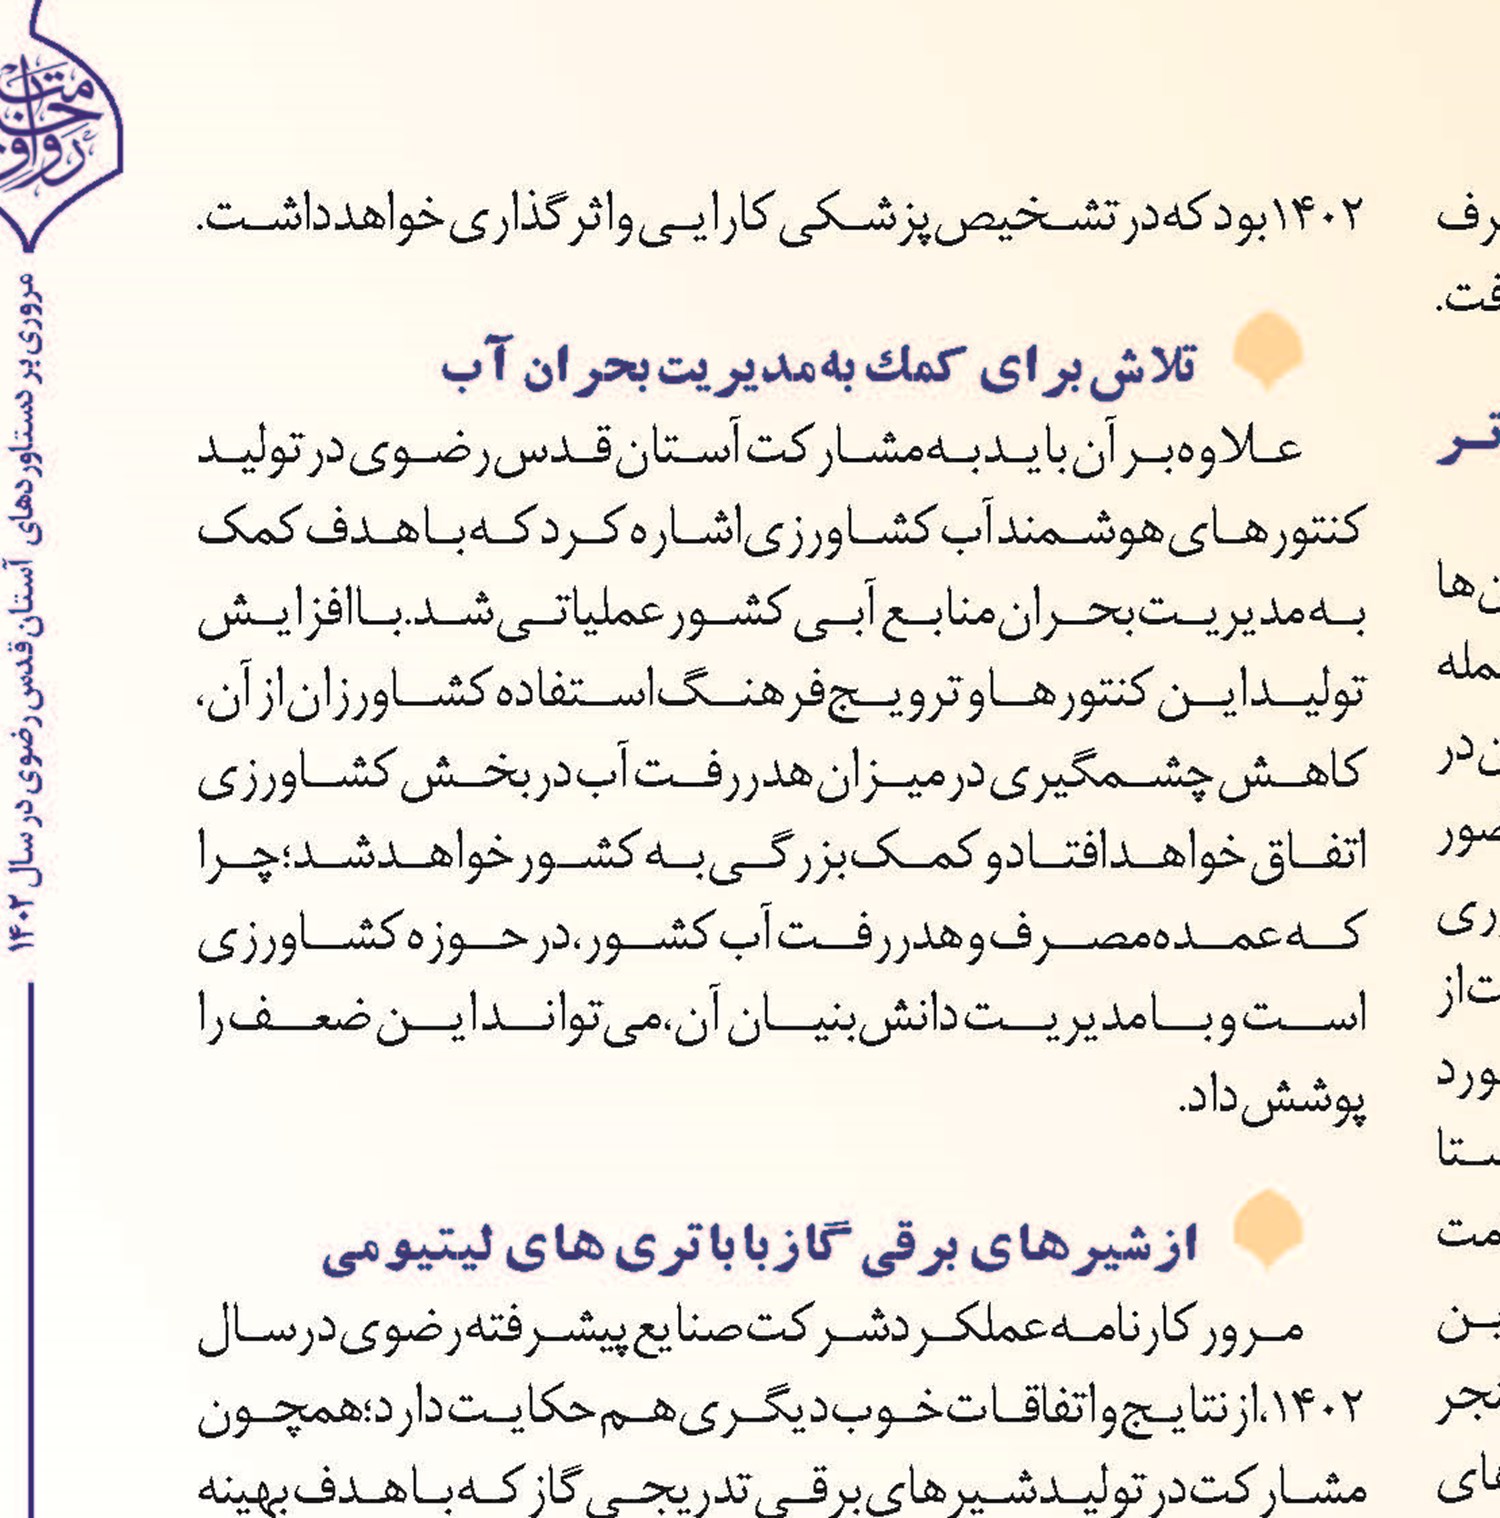 رف
فت.
تر
ن‌ها
مله
ن در
صور
ری
ت از
ورد
ستا
مت
ین
نجر
های
۱۴۰۲ بود که در تشخیص پزشکی کارایی و اثرگذاری خواهد داشت.
تلاش برای کمك به مدیریت بحران آب
علاوه بر آن باید به مشارکت آستان قدس رضوی در تولید
کنتورهای هوشمند آب کشاورزی اشاره کرد که با هدف کمک
به مدیریت بحران منابع آبی کشور عملیاتی شد. با افزایش
تولید این کنتورها و ترویج فرهنگ استفاده کشاورزان از آن،
کاهش چشمگیری در میزان هدررفت آب در بخش کشاورزی
اتفاق خواهد افتاد و کمک بزرگی به کشور خواهد شد؛ چرا
که عمده مصرف و هدررفت آب کشور، در حوزه کشاورزی
است و با مدیریت دانش‌بنیان آن، می‌تواند این ضعف را
پوشش داد.
از شیرهای برقی گاز با باتری های لیتیومی
مرور کارنامه عملکرد شرکت صنایع پیشرفته رضوی در سال
۱۴۰۲، از نتایج و اتفاقات خوب دیگری هم حکایت دارد؛ همچون
مشارکت در تولید شیرهای برقی تدریجی گاز که با هدف بهینه
مروری بر دستاوردهای آستان قدس رضوی در سال ۱۴۰۲